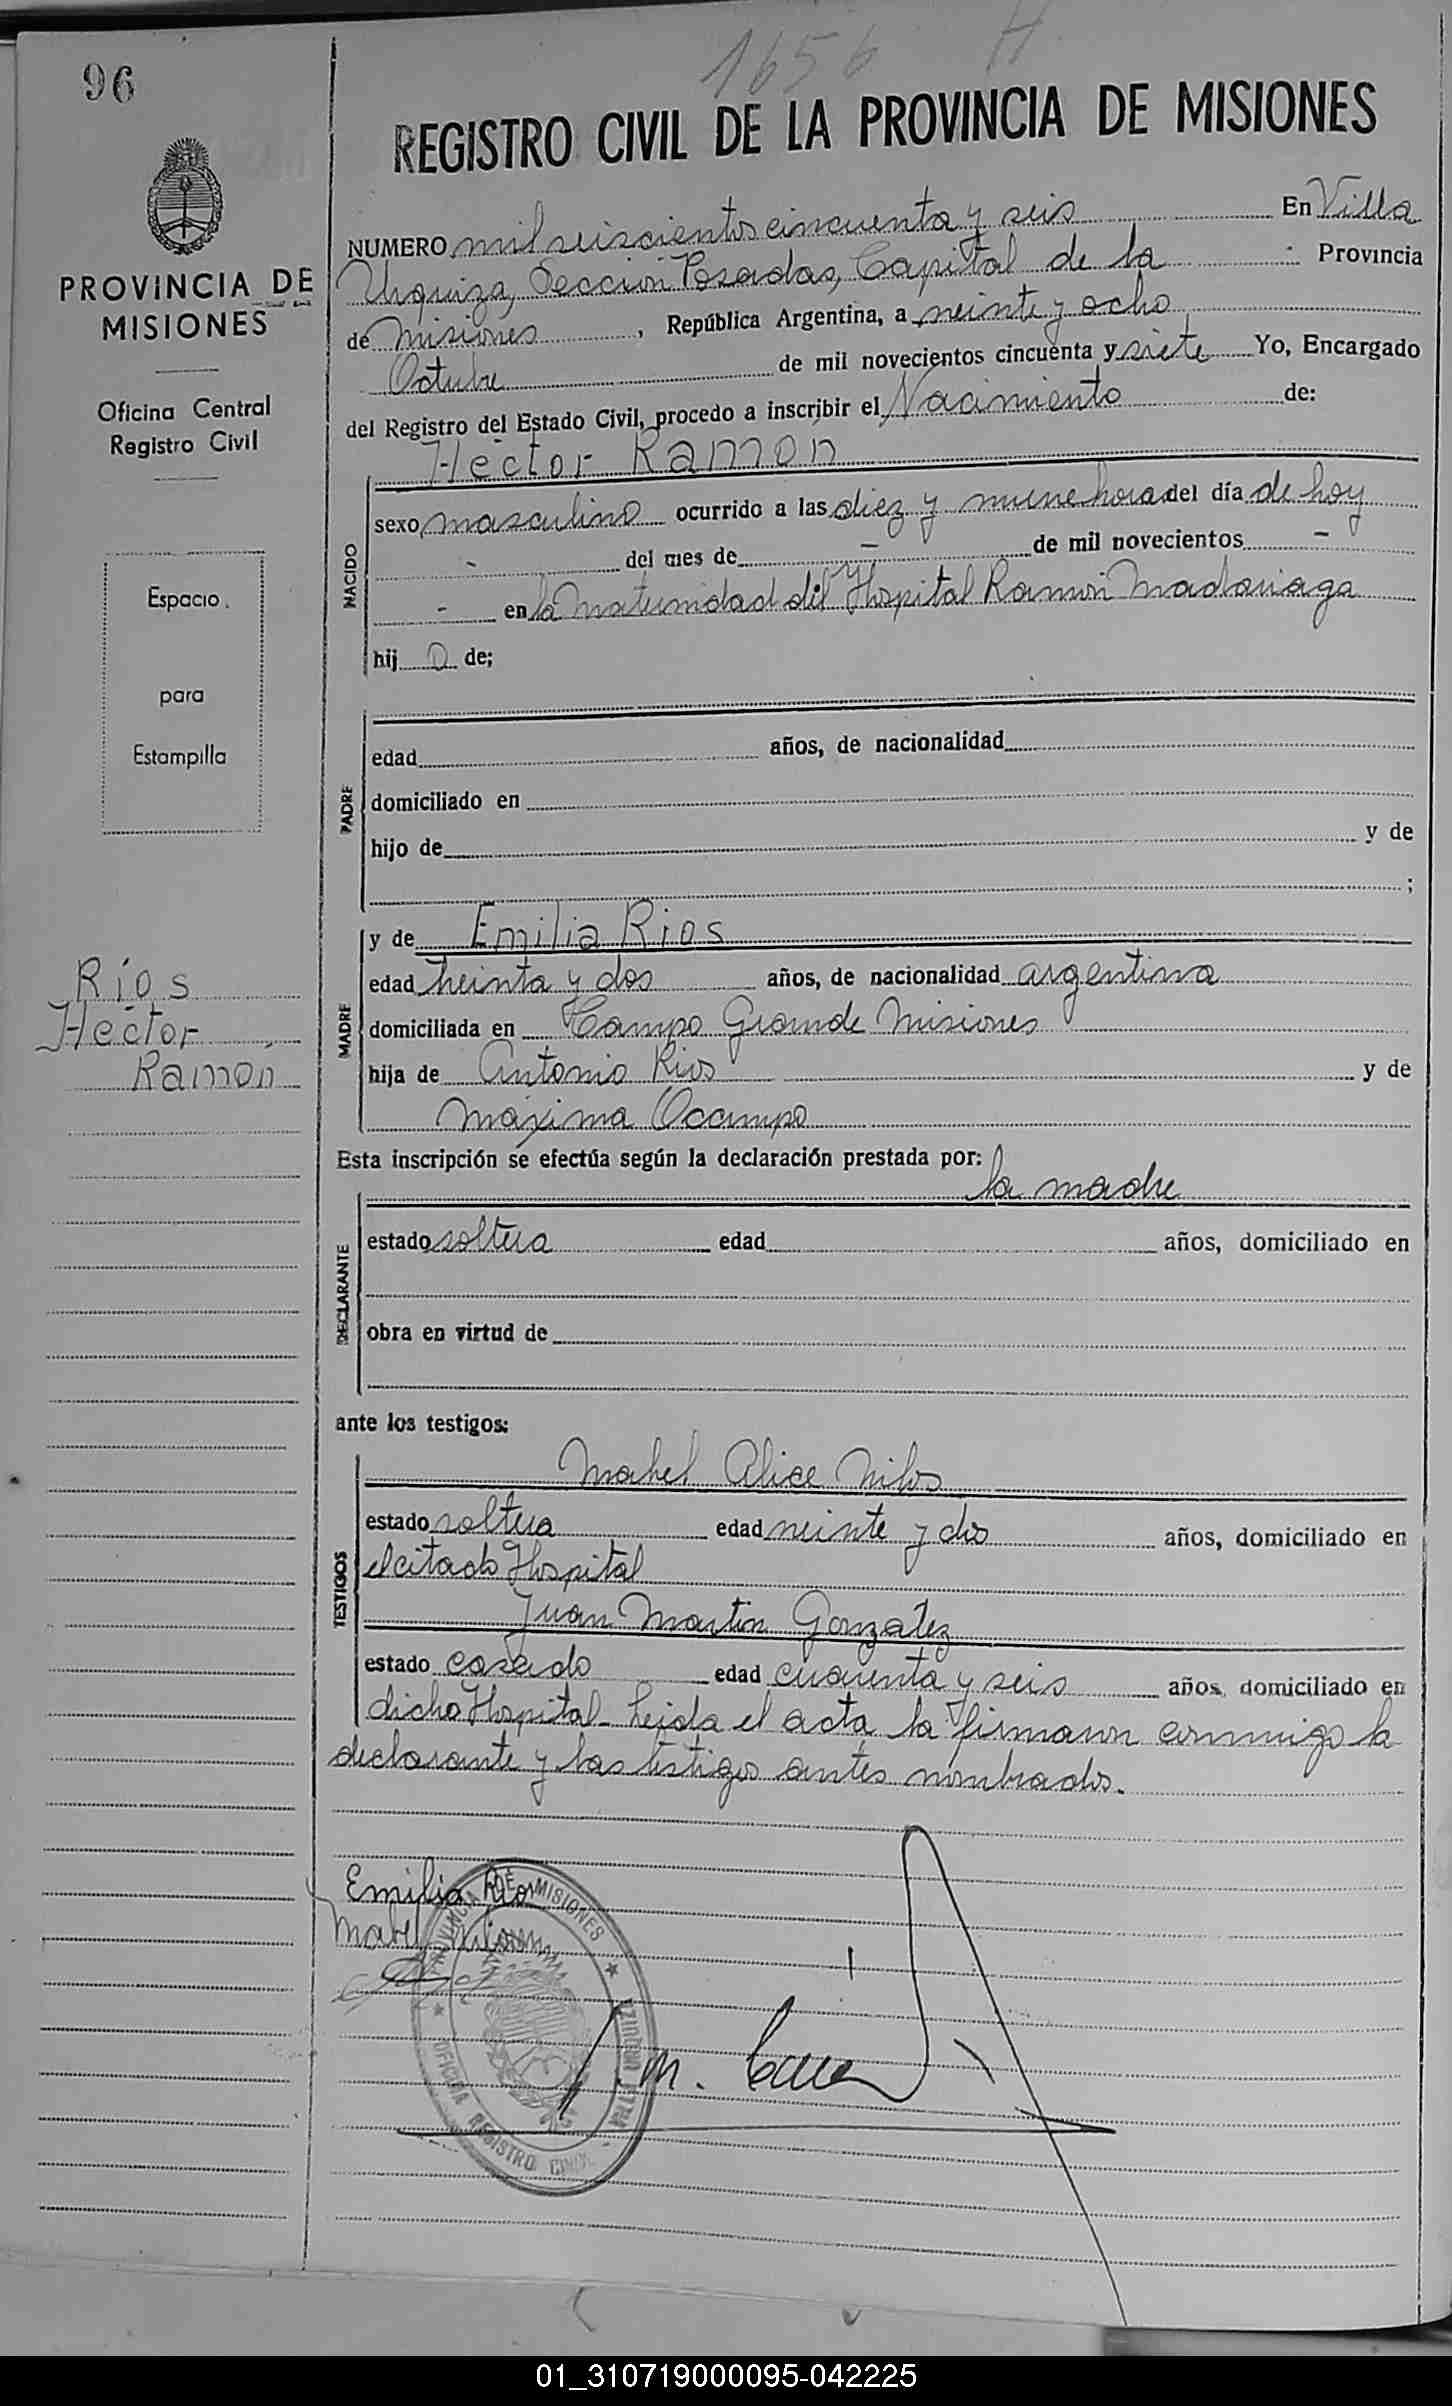 1656 H
96
REGISTRO CIVIL DE LA PROVINCIA DE MISIONES
PROVINCIA DE
MISIONES
Oficina Central
Registro Civil
Espacio
para
Estampilla
Ríos
Héctor
Ramón
NUMERO mil seiscientos cincuenta y seis En Villa
Urquiza, Sección Posadas, Capital de la Provincia
de Misiones, República Argentina, a veinte y ocho
Octubre de mil novecientos cincuenta y siete Yo, Encargado
del Registro del Estado Civil, procedo a inscribir el Nacimiento de:
Héctor Ramón
NACIDO
sexo masculino ocurrido a las diez y nueve horas del día de hoy
- del mes de - de mil novecientos -
- en la Maternidad del Hospital Ramón Madariaga
hij o de;
PADRE
edad años, de nacionalidad
domiciliado en
hijo de y de
;
MADRE
y de Emilia Rios
edad treinta y dos años, de nacionalidad argentina
domiciliada en Campo Grande Misiones
hija de Antonio Rios y de
Máxima Ocampo
Esta inscripción se efectúa según la declaración prestada por:
la madre
DECLARANTE
estado soltera edad años, domiciliado en
obra en virtud de
ante los testigos:
TESTIGOS
Mabel Alice
estado soltera edad veinte y dos años, domiciliado en
el citado Hospital
Juan Martin Gonzalez
estado casado edad cuarenta y seis años, domiciliado en
dicho Hospital - Leida el acta, la firmaron conmigo la
declarante y los testigos antes nombrados.
Emilia Rios
Mabel
PROVINCIA DE MISIONES
OFICINA REGISTRO CIVIL
VILLA URQUIZA
01_310719000095-042225